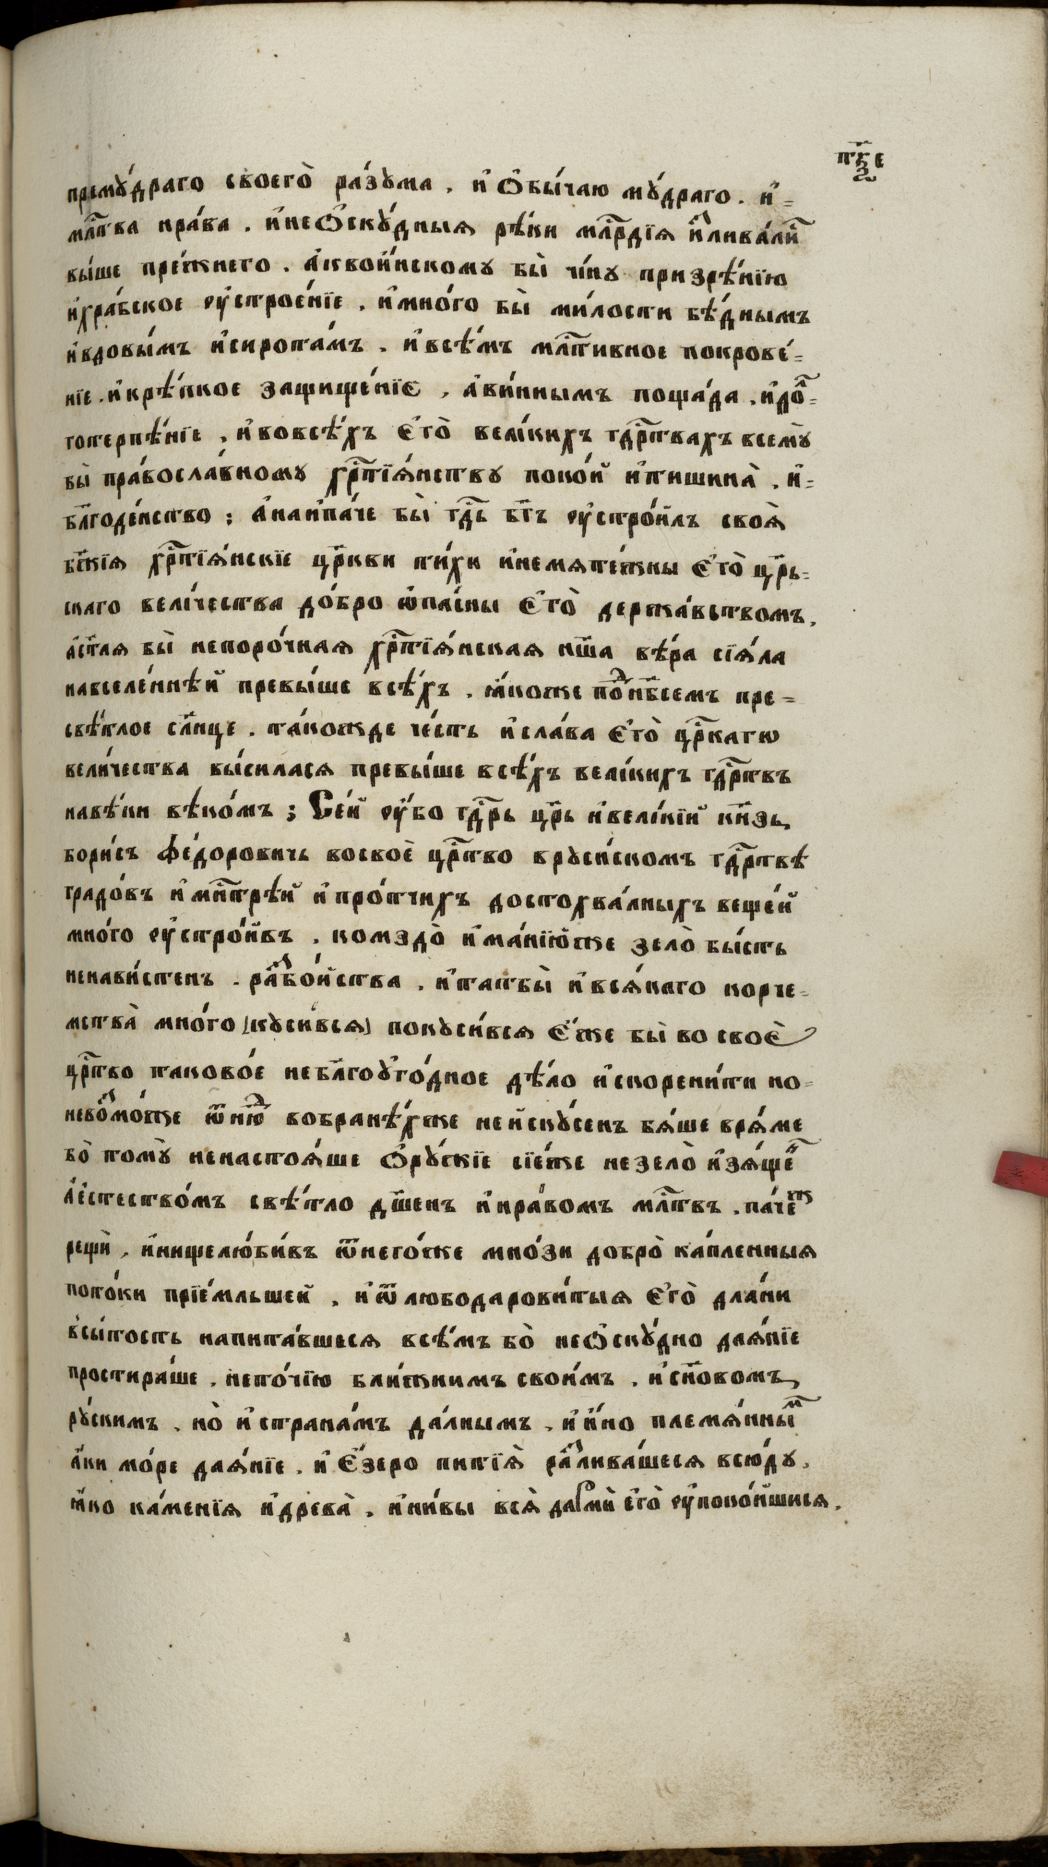 премꙋ́драго своегѡ̀ ра́зꙋма . и҆ ѻ҆бы́чаю мꙋ́драго . и҆=
млⷭ҇тва нра́ва . и҆неѻ҆скꙋ́дныя рѣ́ки млⷭ҇рдїя и҆ⷥлива́лиⷭ҇
вы́ше пре́жнего . а҆кво́йнскомꙋ бы̀ чи́нꙋ призрѣ́нїю
и҆хра́бское ᲂу҆строе́нїе . и҆мно́го бы̀ ми́лости бѣ́днымъ
и҆вдовы́мъ и҆сирота́мъ . и҆всѣ́мъ млⷭ҇тивное покрове́=
нїе . и҆крѣ́пкое защище́нїе , а҆ви́ннымъ поща́да . и҆до́ⷧ=
готерпѣ́нїе , и҆вовсѣ́хъ є҆гѡ̀ вели́кихъ гдⷭ҇рьтвахъ всемꙋ̀
бы̀ правосла́вномꙋ хрⷭ҇тїѧ́нствꙋ поко́й и҆тишина̀ . и҆=
бл҃годе́нство ; а҆наи҆па́че бы̀ гдⷭ҇ь бг҃ъ ᲂу҆стро́илъ своѧ̀
бж҃їѧ хрⷭ҇тїѧ́нскїе цр҃кви ти́хи и҆немѧте́жны є҆гѡ̀ цр҃ь=
скаго вели́чества до́бро ѡ҆па́сны є҆гѡ̀ держа́вством .
а҆ст҃ая бы̀ непоро́чная хрⷭ҇тїѧ́нская нш҃а вѣ́ра сїѧ́ла
навселе́ннѣй превы́ше всѣ́хъ . ꙗ҆́коже поⷣнб҃семъ пре=
свѣ́тлое сл҃нце . та́кожде че́сть и҆сла́ва є҆гѡ̀ црⷭ҇кагѡ
вели́чества вы́силася превы́ше всѣ́хъ вели́кихъ гдⷭ҇рьтвъ
навѣ́ки вѣко́мъ ; Се́й ᲂу҆́бо гдⷭ҇рь цр҃ь и҆вели́кїй кн҃зь
бори́съ ѳе́дорович​ь восвоѐ црⷭ҇тво врꙋси́скомъ гдⷭ҇рьтвѣ
градо́въ и҆мнⷭ҇трѣ́й и҆про́тчихъ достохва́лныхъ веще́й
мно́го ᲂу҆стро́ивъ . комздо̀ и҆ма́нїю́же зело̀ бы́сть
ненави́стенъ . раⷥбо́йства . и҆татбы̀ и҆всѧ́каго корче=
мства̀ мно́го [кꙋси́вся] покꙋси́вся є҆́же бы̀ во своѐ
црⷭ҇тво таково́е небл҃гоꙋ҆го́дное дѣ́ло и҆скоренити но=
нево́ⷥможе ѿниⷯ вобране́хже неи҆скꙋ́сенъ бѧ́ше врѧ́ме
бо̀ томꙋ̀ ненастоѧ́ше ѻ҆рꙋ́скїе сїе́же незело̀ и҆зѧ́щеⷩ҇
а҆́естество́мъ свѣ́тло дш҃енъ и҆нра́вомъ млⷭ҇твъ . паче́ⷤ
рещѝ . и҆нищелю́бивъ ѿнего́же мно́зи добро̀ ка́пленныя
пото́ки прїе́мльшей . и҆ѿлюбодарови́тыя є҆гѡ̀ дла́ни
всы́тость напита́вшеся всѣ́мъ бо̀ неѻ҆скꙋ́дно даѧ́нїе
простира́ше . непо́чїю бли́жнимъ свои́мъ . и҆сн҃овомъ
рꙋ́скимъ . но̀ и҆страна́мъ да́лнымъ . и҆и҆но племѧ́нныⷨ
а҆́ки мо́ре даѧ́нїе . и҆ є҆́зеро питїѧ̀ раⷥлива́шеся всю́дꙋ .
ꙗ҆́ко ка́менїя и҆древа̀ . и҆ни́вы всѧ̀ дарми̂ є҆гѡ̀ ᲂу҆поко́йшися .